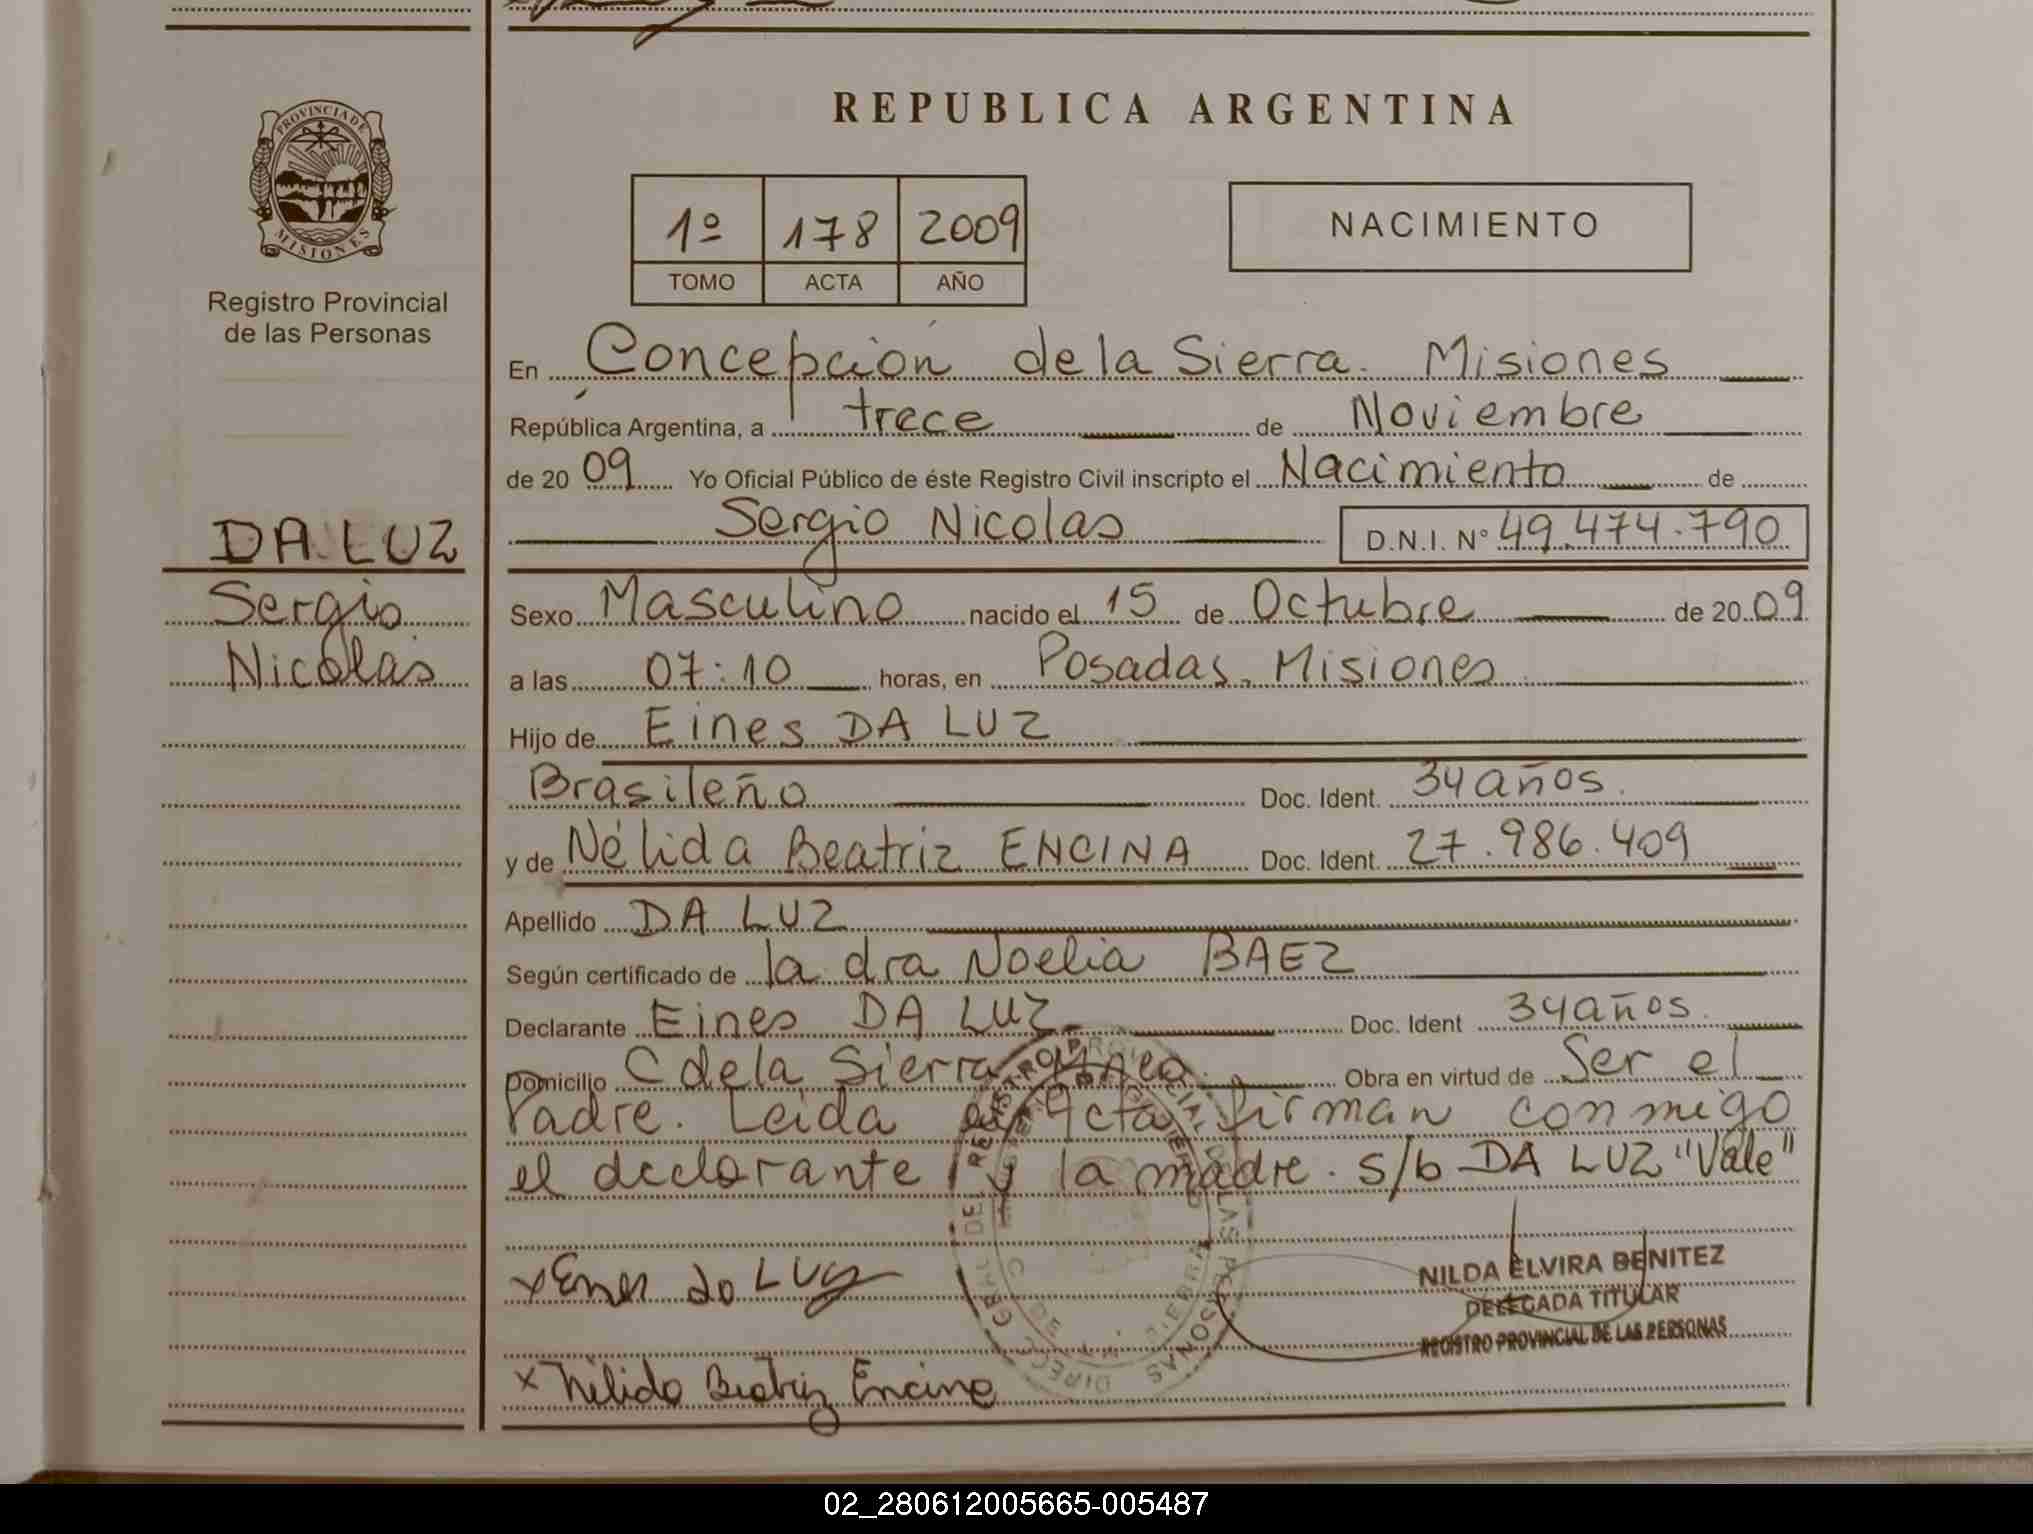 PROVINCIA DE
MISIONES
Registro Provincial
de las Personas
DA LUZ
Sergio
Nicolas
REPUBLICA ARGENTINA
1º 178 2009
TOMO ACTA AÑO
NACIMIENTO
En Concepción de la Sierra. Misiones
República Argentina, a trece de Noviembre
de 20 09 Yo Oficial Público de éste Registro Civil inscripto el Nacimiento de
Sergio Nicolas D.N.I. N° 49.474.790
Sexo Masculino nacido el 15 de Octubre de 20 09
a las 07:10 horas, en Posadas, Misiones
Hijo de Eines DA LUZ
Brasileño Doc. Ident. 34 años.
y de Nélida Beatriz ENCINA Doc. Ident. 27.986.409
Apellido DA LUZ
Según certificado de la dra Noelia BAEZ
Declarante Eines DA LUZ Doc. Ident 34 años.
Domicilio C de la Sierra Mnes. Obra en virtud de Ser el
Padre. Leida el Acta firman conmigo
el declarante y la madre. s/b DA LUZ "Vale"
x Eines da Luz
NILDA ELVIRA BENITEZ
DELEGADA TITULAR
REGISTRO PROVINCIAL DE LAS PERSONAS
x Nélida Beatriz Encina
02_280612005665-005487